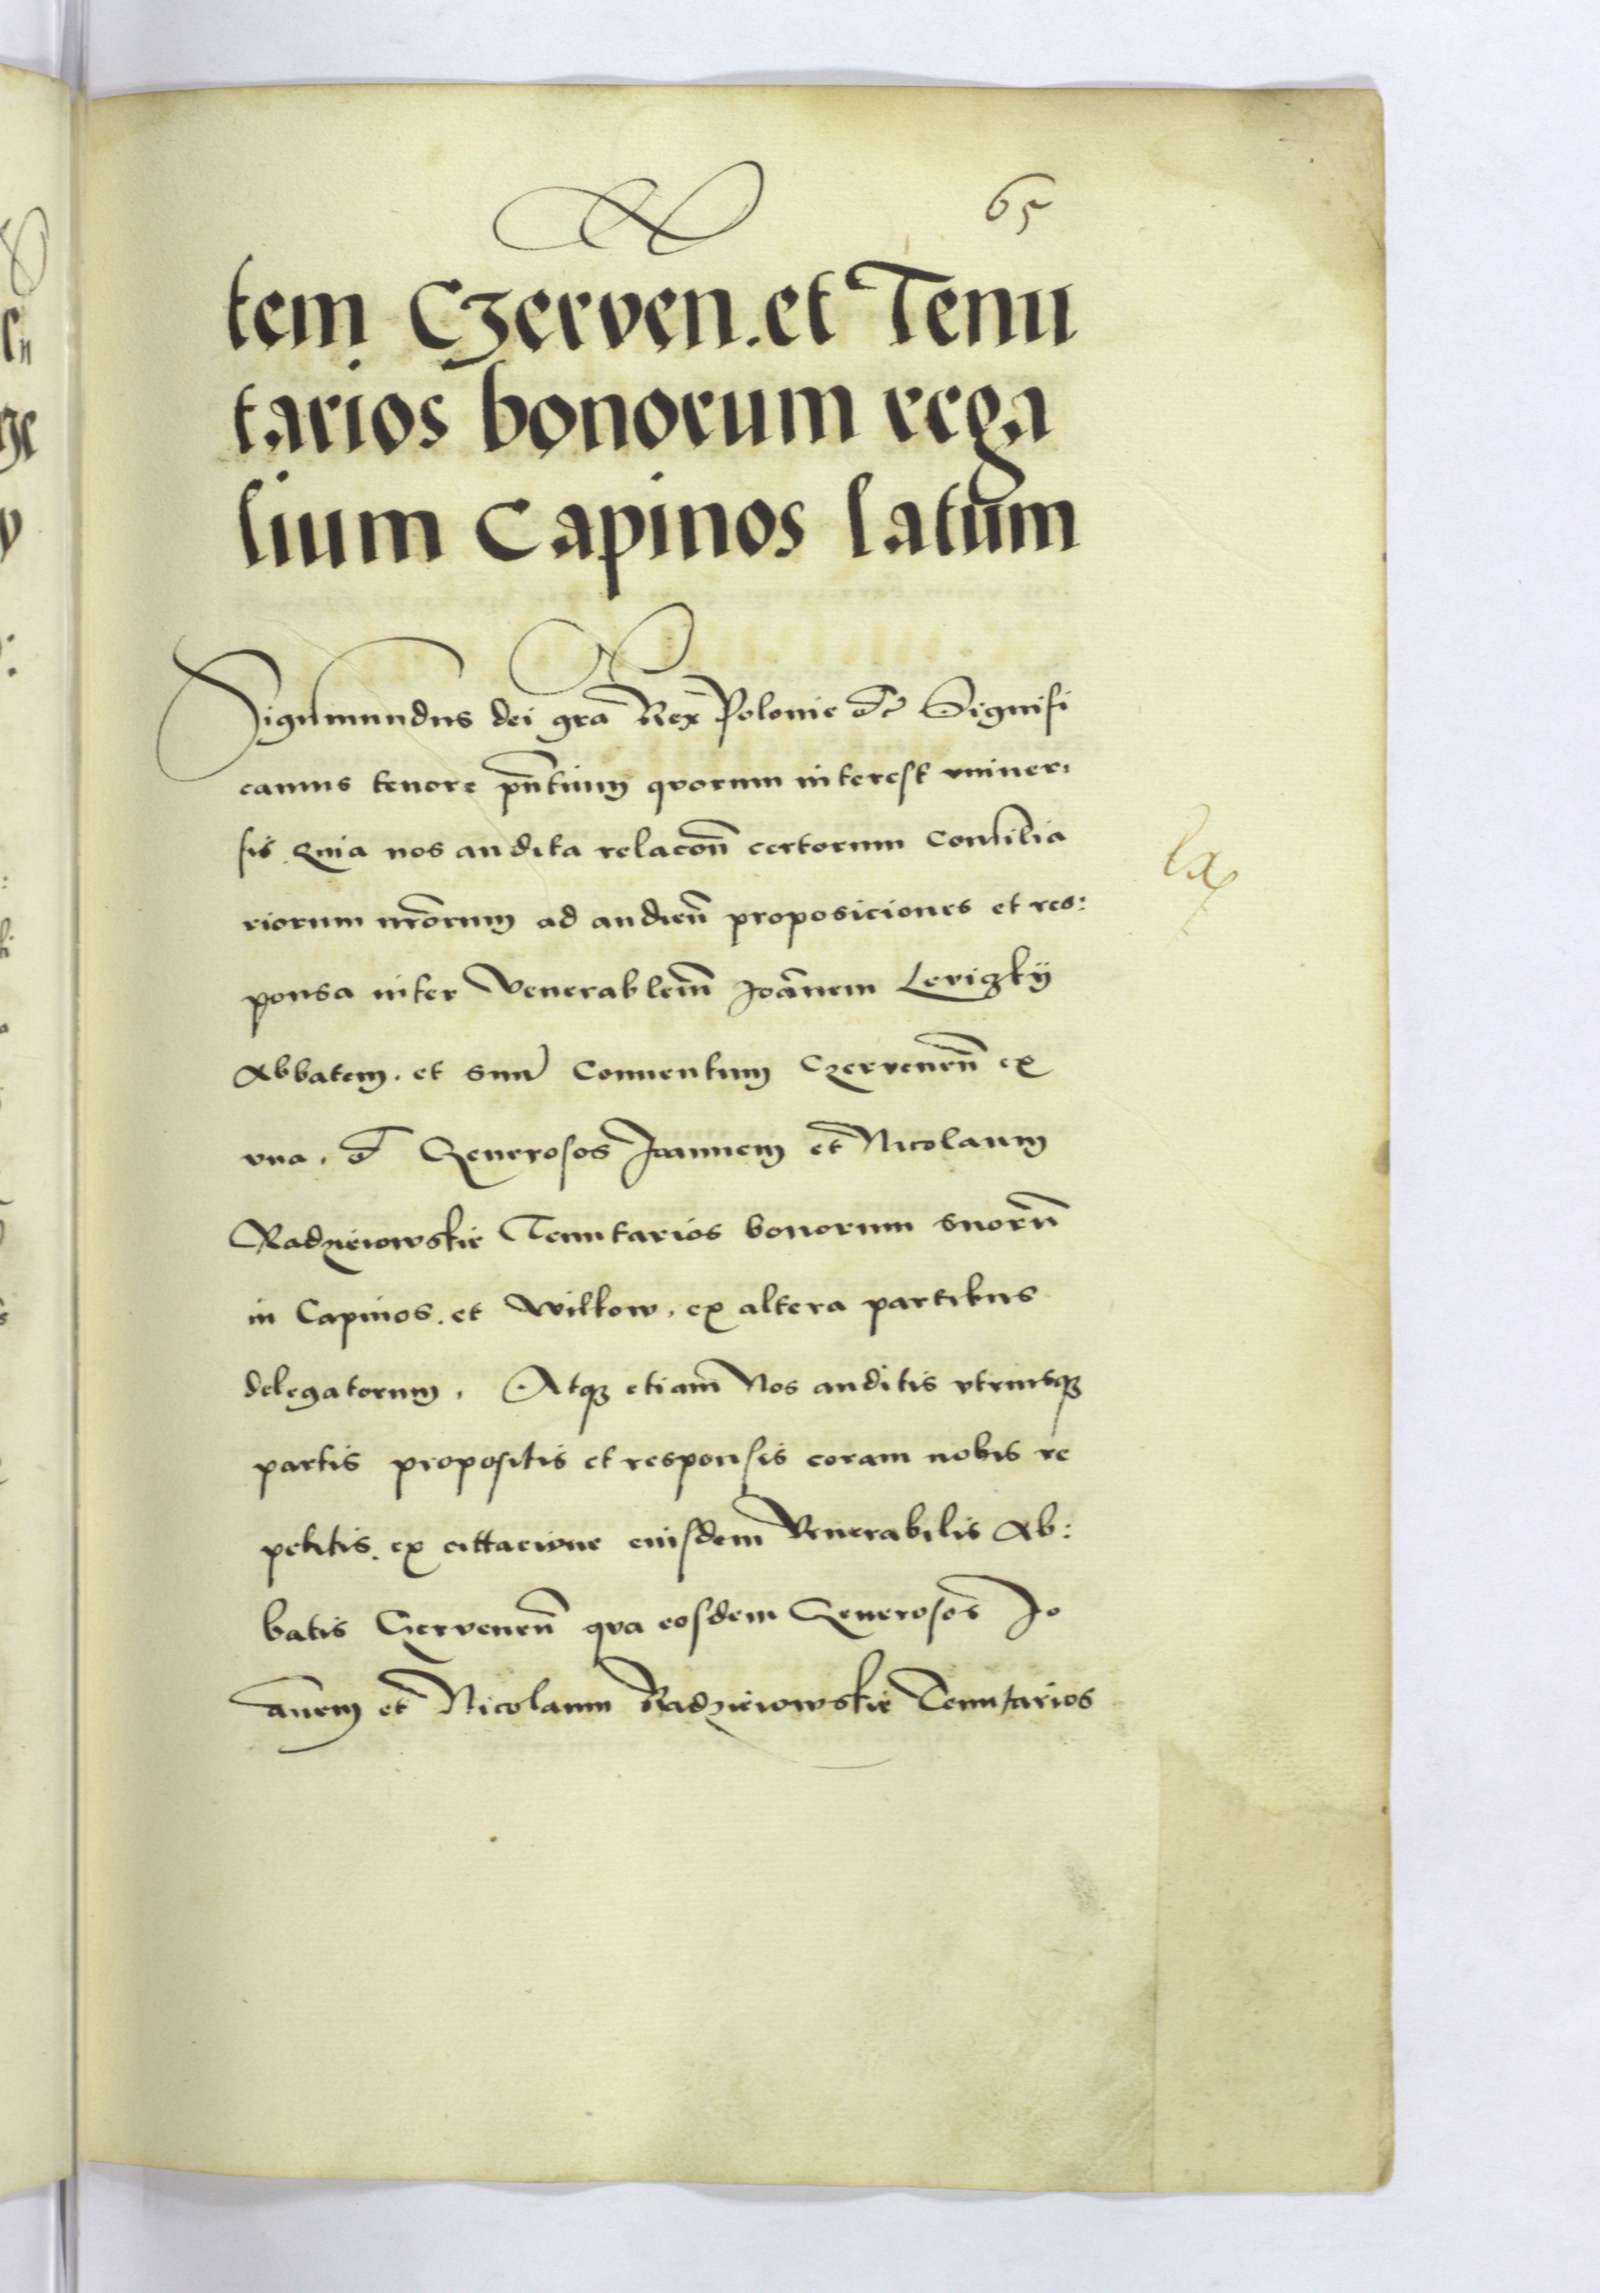 65
tem Czerven. et Tenu
tarios bonorum rega
lium Capinos latum
Sigismundus dei gra Rex Polonie etc Signifi
camus tenore pntium quorum interest vniuer:
sis Quia nos audita relacon certorum Consilia
riorum nrorum ad audien proposiciones et res:
ponsa inter Venerablem Joannem Leviczkij
Abbatem. et suu Conuentum Czervenen ex
vna. et Generosos Joannem et Nicolaum
Radzieiowskie Tenutarios bonorum nrorum
in Capinos. et Wilkow. ex altera partibus
delegatorum. Atqz etiam Nos auditis vtriusqz
partis propositis et responsis coram nobis re
petitis. ex cittacione eiusdem Venerabilis Ab:
batis Czervenen qua eosdem Generosos Jo
annem et Nicolaum Radzieiowskie Tenutarios